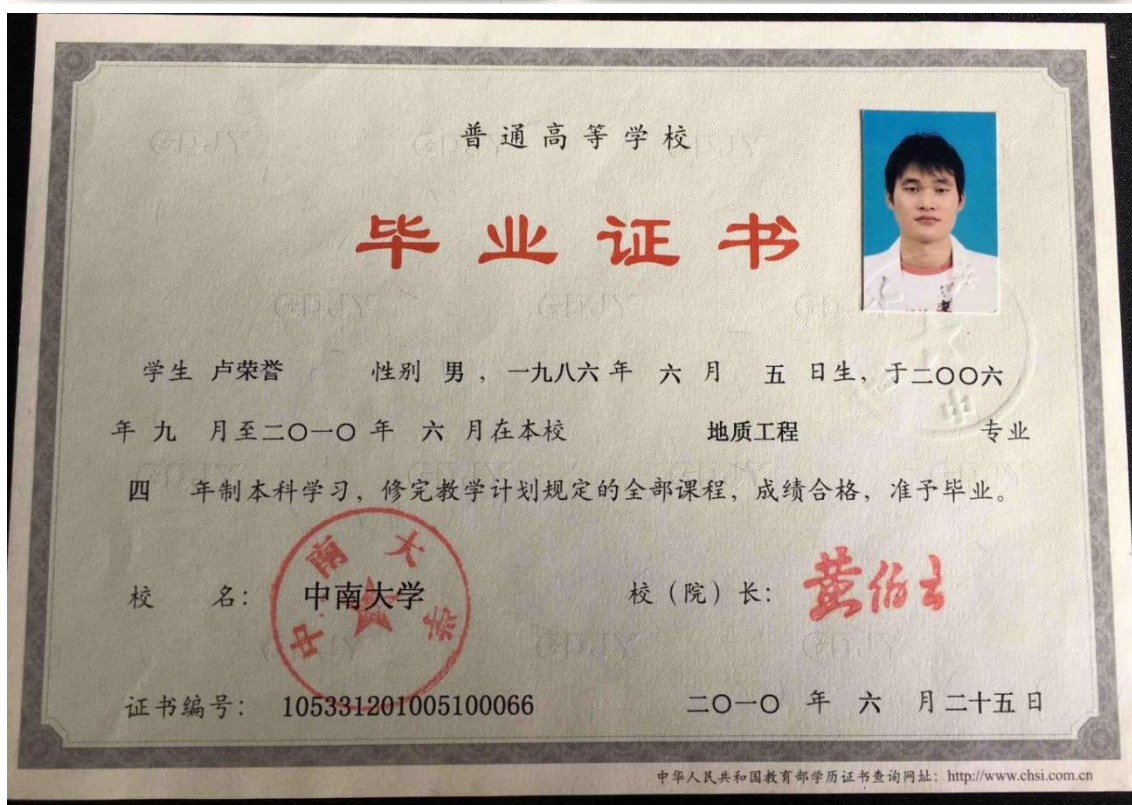 普通高等学校
毕业证书
学生 卢荣誉 性别 男，一九八六年 六 月 五 日生，于二〇〇六
年 九 月至二〇一〇 年 六 月在本校 地质工程 专业
四 年制本科学习，修完教学计划规定的全部课程，成绩合格，准予毕业。
校 名： 中南大学
中南大学
校（院）长： 黄伯云
证书编号： 105331201005100066
二〇一〇 年 六 月二十五日
中华人民共和国教育部学历证书查询网址：http://www.chsi.com.cn